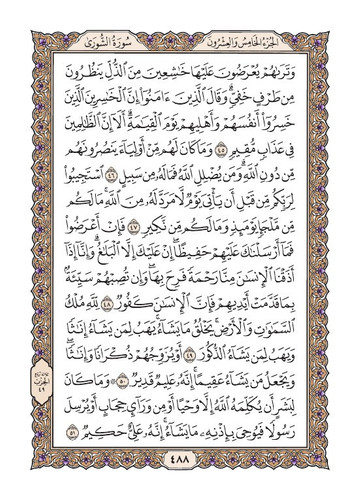 الجزء الخامس والعشرون
سورة الشورى
وَتَرَىٰهُمْ يُعْرَضُونَ عَلَيْهَا خَٰشِعِينَ مِنَ ٱلذُّلِّ يَنظُرُونَ
مِن طَرْفٍ خَفِىٍّ ۗ وَقَالَ ٱلَّذِينَ ءَامَنُوٓا۟ إِنَّ ٱلْخَٰسِرِينَ ٱلَّذِينَ
خَسِرُوٓا۟ أَنفُسَهُمْ وَأَهْلِيهِمْ يَوْمَ ٱلْقِيَٰمَةِ ۗ أَلَآ إِنَّ ٱلظَّٰلِمِينَ
فِى عَذَابٍ مُّقِيمٍ ٤٥ وَمَا كَانَ لَهُم مِّنْ أَوْلِيَآءَ يَنصُرُونَهُم
مِّن دُونِ ٱللَّهِ ۗ وَمَن يُضْلِلِ ٱللَّهُ فَمَا لَهُۥ مِن سَبِيلٍ ٤٦ ٱسْتَجِيبُوا۟
لِرَبِّكُم مِّن قَبْلِ أَن يَأْتِىَ يَوْمٌ لَّا مَرَدَّ لَهُۥ مِنَ ٱللَّهِ ۚ مَا لَكُم
مِّن مَّلْجَإٍ يَوْمَئِذٍ وَمَا لَكُم مِّن نَّكِيرٍ ٤٧ فَإِنْ أَعْرَضُوا۟
فَمَآ أَرْسَلْنَٰكَ عَلَيْهِمْ حَفِيظًا ۖ إِنْ عَلَيْكَ إِلَّا ٱلْبَلَٰغُ ۗ وَإِنَّآ إِذَآ
أَذَقْنَا ٱلْإِنسَٰنَ مِنَّا رَحْمَةً فَرِحَ بِهَا ۖ وَإِن تُصِبْهُمْ سَيِّئَةٌۢ
بِمَا قَدَّمَتْ أَيْدِيهِمْ فَإِنَّ ٱلْإِنسَٰنَ كَفُورٌ ٤٨ لِّلَّهِ مُلْكُ
ٱلسَّمَٰوَٰتِ وَٱلْأَرْضِ ۚ يَخْلُقُ مَا يَشَآءُ ۚ يَهَبُ لِمَن يَشَآءُ إِنَٰثًا
وَيَهَبُ لِمَن يَشَآءُ ٱلذُّكُورَ ٤٩ أَوْ يُزَوِّجُهُمْ ذُكْرَانًا وَإِنَٰثًا ۖ
وَيَجْعَلُ مَن يَشَآءُ عَقِيمًا ۚ إِنَّهُۥ عَلِيمٌ قَدِيرٌ ٥٠ وَمَا كَانَ
لِبَشَرٍ أَن يُكَلِّمَهُ ٱللَّهُ إِلَّا وَحْيًا أَوْ مِن وَرَآئِ حِجَابٍ أَوْ يُرْسِلَ
رَسُولًا فَيُوحِىَ بِإِذْنِهِۦ مَا يَشَآءُ ۚ إِنَّهُۥ عَلِىٌّ حَكِيمٌ ٥١
الحزب
٤٩
٤٨٨